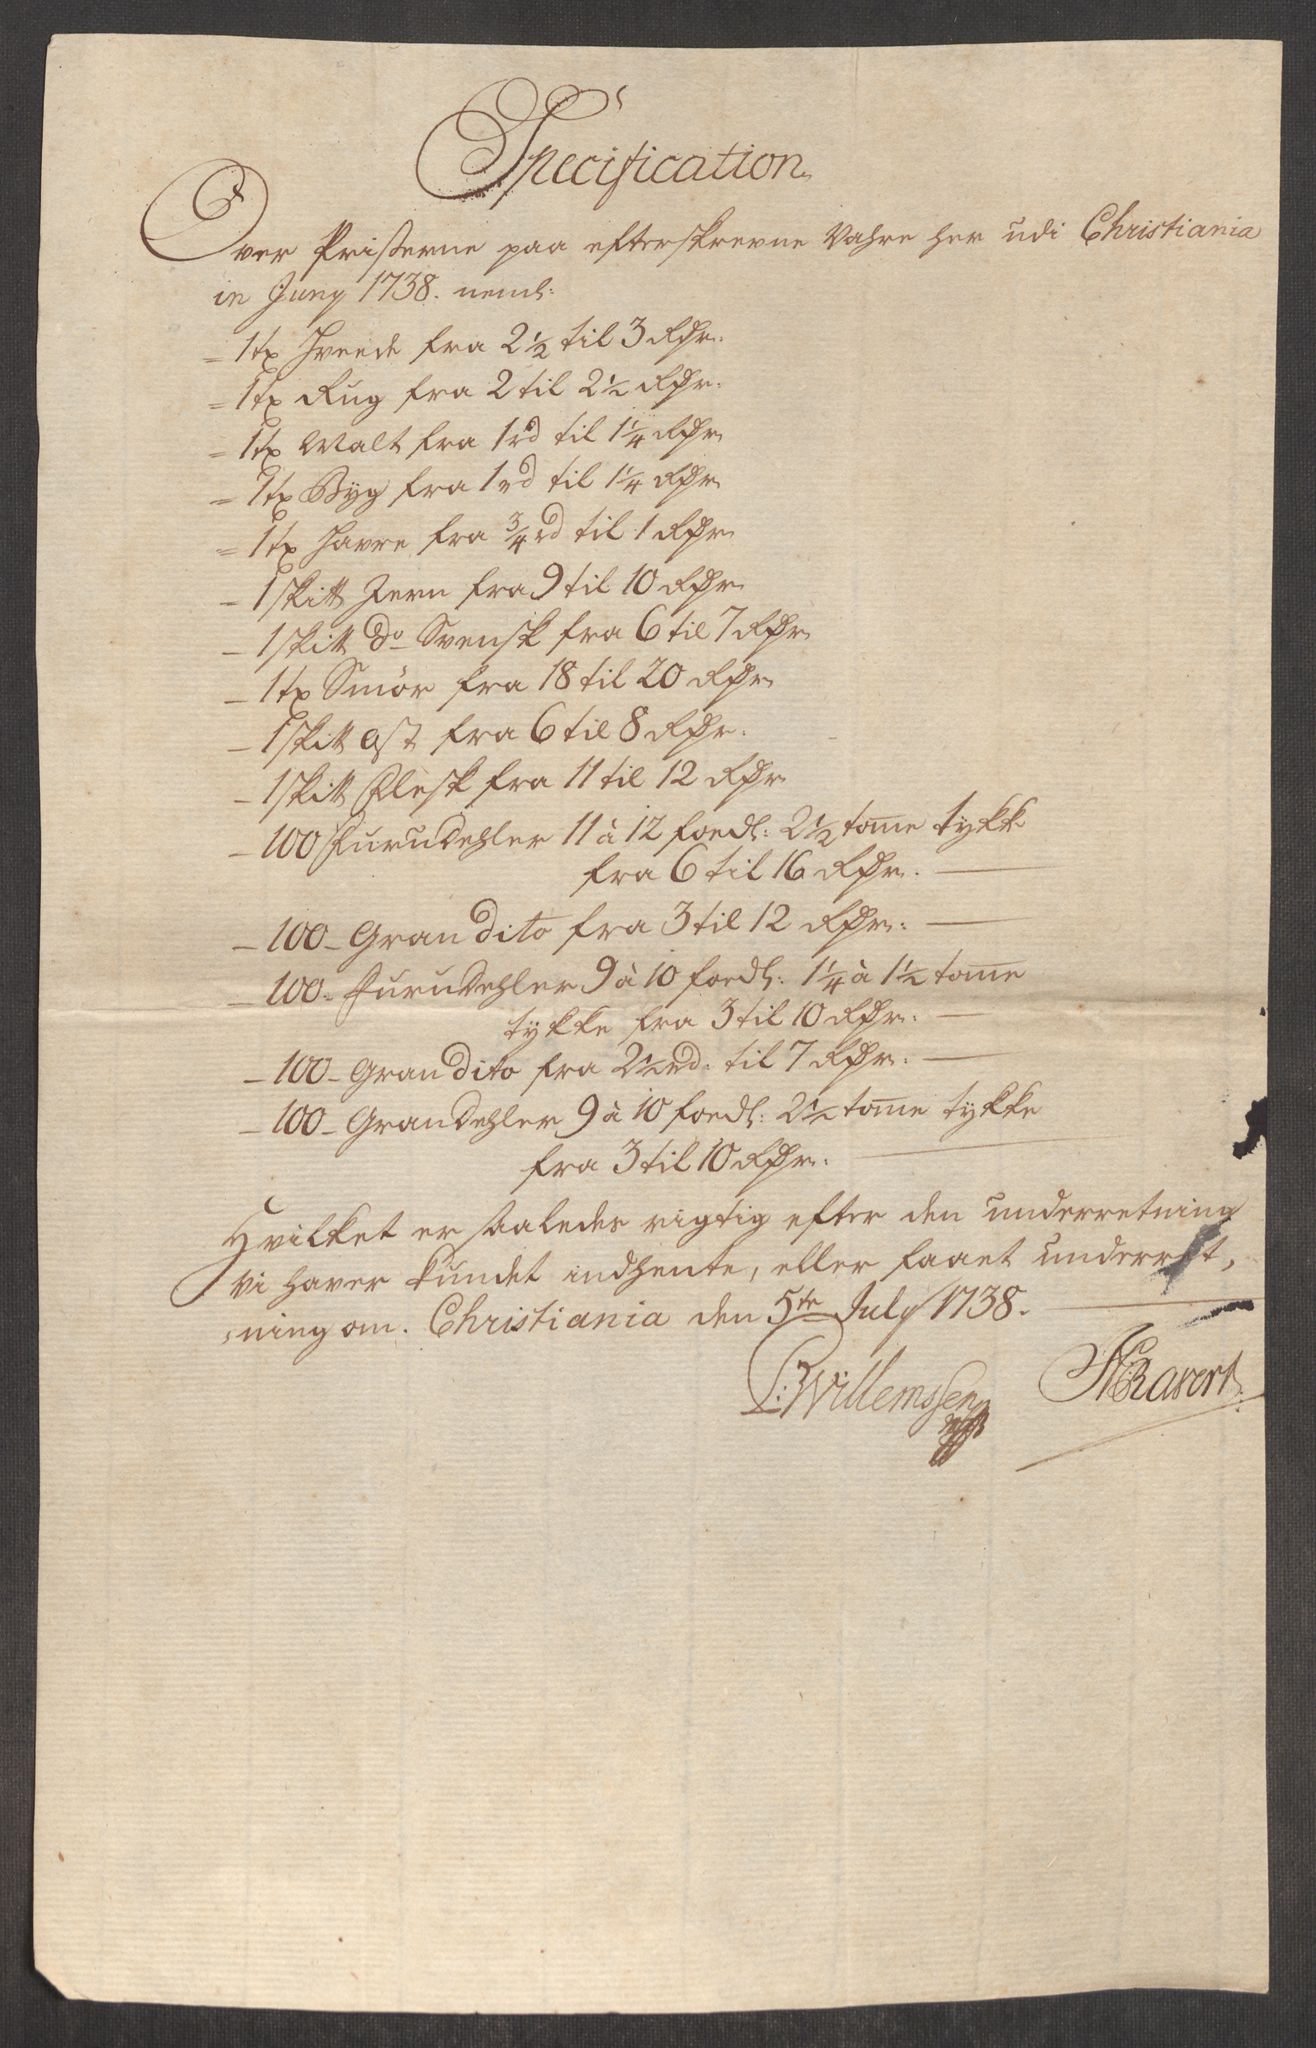 Specification
Over Prisserne paa efterskrevne Vahre her udi Christiania
in Juny 1738. neml:
- 1 tø Hvede fra 2½ til 3 Rdr.
- 1 tø Rug fra 2 til 2½ Rdr.
- 1 tø Malt fra 1 rd til 1¼ Rdr.
- 1 tø Byg fra 1 rd til 1¼ Rdr.
- 1 tø Havre fra ¾ rd til 1 Rdr.
- 1 skitt Jern fra 9 til 10 Rdr.
- 1 skitt do Svensk fra 6 til 7 Rdr.
- 1 tø Smør fra 18 til 20 Rdr.
- 1 skitt ost fra 6 til 8 Rdr.
- 1 skitt Flesk fra 11 til 12 Rdr.
- 100 Furudehler 11 à 12 foed: 2½ tome tykk
fra 6 til 16 Rdr.
- 100 - Gran dito fra 3 til 12 Rdr.
- 100 - Furudehler 9 à 10 foed: 1¼ à 1½ tome
tykke fra 3 til 10 Rdr.
- 100 - Gran dito fra 2½ rd: til 7 Rdr.
- 100 - Grandehler 9 à 10 foed: 2½ tome tykke
fra 3 til 10 Rdr.
Hvilket er saaledes rigtig efter den underretning
vi haver kundet indhente, eller faaet underret,
,ning om. Christiania den 5te July 1738.
Willemssen Ravert